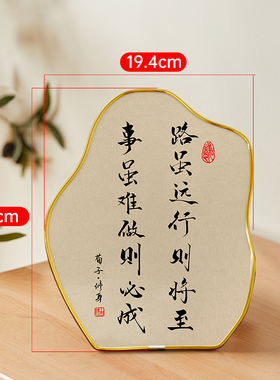 19.4cm
cm
路虽远行则将至
事虽难做则必成
荀子·修身